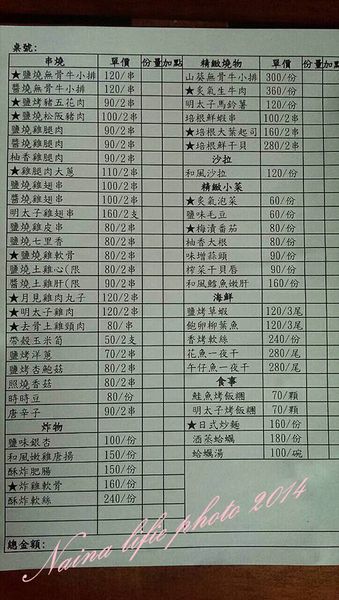 桌號:
串燒 單價 份量 加點
★鹽燒無骨牛小排 120/串
醬燒無骨牛小排 120/串
★鹽烤豬五花肉 90/2串
★鹽燒松阪豬肉 100/2串
鹽燒雞腿肉 90/2串
醬燒雞腿肉 90/2串
柚香雞腿肉 90/2串
★雞腿肉大蔥 110/2串
鹽燒雞翅串 100/2串
醬燒雞翅串 100/2串
明太子雞翅串 160/2支
鹽燒雞皮串 80/2串
鹽燒七里香 80/2串
★鹽燒雞軟骨 80/2串
鹽燒土雞心(限 80/2串
醬燒土雞肝(限 80/2串
★月見雞肉丸子 120/2串
★明太子雞柳 120/2串
★去骨土雞頸肉 80/串
帶殼玉米筍 50/2支
鹽烤洋蔥 70/2串
鹽烤杏鮑菇 80/2串
照燒香菇 80/2串
時時豆 80/份
唐辛子 90/2串
炸物
鹽味銀杏 100/份
和風嫩雞唐揚 150/份
酥炸肥腸 150/份
★炸雞軟骨 160/份
酥炸軟絲 240/份
總金額:
精緻燒物 單價 份量 加點
山葵無骨牛小排 300/份
★炙氣生牛肉 360/份
明太子馬鈴薯 120/份
培根鮮蝦串 100/2串
★培根大葉起司 160/2串
★培根鮮干貝 280/2串
沙拉
和風沙拉 120/份
精緻小菜
★炙氣泡菜 60/份
鹽味毛豆 60/份
★梅漬番茄 80/份
柚香大根 80/份
味增蒜頭 90/份
榨菜干貝唇 90/份
和風鱈魚嫩肝 160/份
海鮮
鹽烤草蝦 120/3尾
飽卵柳葉魚 120/3尾
香烤軟絲 240/份
花魚一夜干 280/尾
午仔魚一夜干 280/尾
食事
鮭魚烤飯糰 70/顆
明太子烤飯糰 70/顆
★日式炒麵 160/份
酒蒸蛤蠣 180/份
蛤蠣湯 100/碗
Naina lifie photo 2014